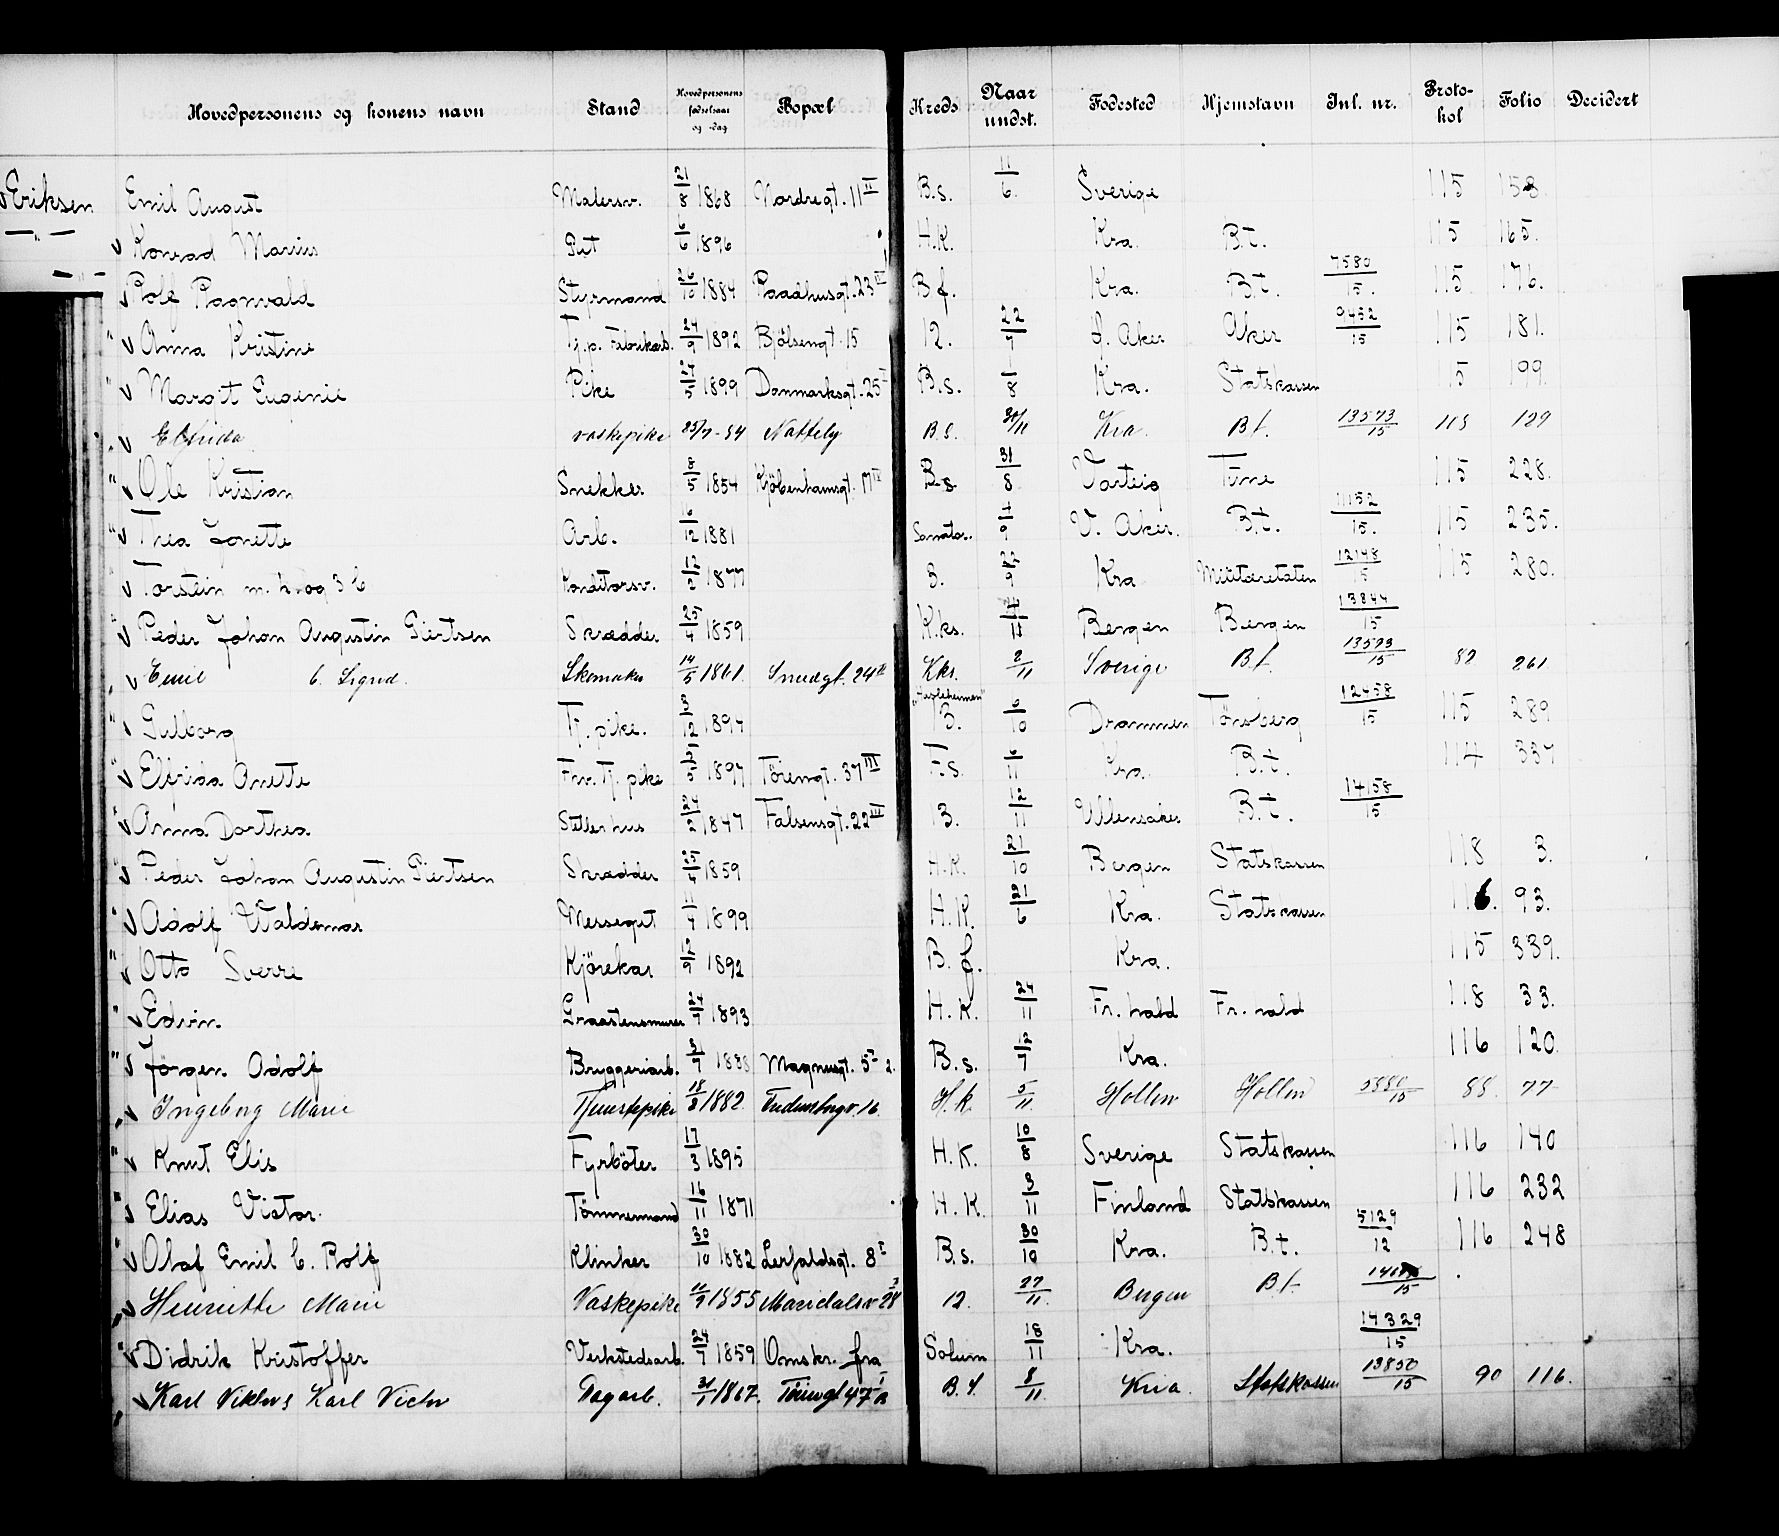 Hovedpersonens og konens navn | Stand | Hovedpersonens fødselsaar og -dag | Bopæl | Kreds | Naar undst. | Fødested | Hjemstavn | Inl. nr. | Protokol | Folio | Decidert
Eriksen Emil August | Malersv. | 21/8 1868 | Nordregt. 11 II | B.s. | 11/6. | Sverige | 115 | 158.
—„— Konrad Marius | Pit | 6/6 1896 | H.K. | Kra. | B.t. | 115 | 165.
—„— Rolf Ragnvald | Styrmand | 26/10 1884 | Raadhusgt. 23 | B f. | Kra. | B.t. | 7580/15. | 115 | 176.
" Anna Kristine | Tj.p. Fabrikarb. | 24/9 1892 | Bjølsengt. 15 | 12. | 22/7 | Ø. Aker | Aker | 9452/15 | 115 | 181.
" Margit Eugenie | Pike | 27/5 1899 | Danmarksgt. 25 | B.s. | /8 | Kra. | Statskassen | 15 | 199.
" Elfrida | vaskepike | 25/7-54 | Nattely | B.S. | 30/11 | Kra. | B.t. | 13573/15 | 115 | 129
" Ole Kristian | Snekker | 8/5 1854 | Kjøbenhavnsgt. 17 IV | B.s | 31/8 | Varteig | Tune | 115 | 228.
" Thea Jonette | Arb. | 16/12 1881 | Sanator. | 4/9 | V. Aker. | B.t. | 11152/15. | 115 | 235.
" Torstein m. h. og 3 b | Konditorsv. | 12/2 1877 | 3. | 22/9 | Kra | Militæretaten | 12148/15 | 115 | 280.
" Peder Johan Augustin Giertsen | Skrædder | 25/4 1859 | K.ks. | 4/11 | Bergen | Bergen | 13844/15
" Emil b. Sigrid. | Skomaker | 14/5 1861. | Smedgt. 24 | Kks. | 2/11 | Sverige | B.t. | 13593/15 | 82 | 261
" Gulborg | Tj. pike. | 3/12 1897 | 13. | 6/10 | Drammen | Tönsberg | 12458/15 | 115 | 289
" Elfrida Anette | Frv. Tj. pike | 1897 | Töiengt. 37 III | F.s. | 6/11 | Kra. | B.t. | 114 | 337
" Anna Dorthea | Steller hus | 24/2 1847 | Falsensgt. 22 III | 13. | 12/11 | Ullensaker | B.t. | 14158/15
" Peder Johan Augustin Giertsen | Skrædder | 25/4 1859 | H.K. | 21/10 | Bergen | Statskassen | 118 | 3.
" Adolf Waldemar | Messegut | 11/7 1899 | H.K. | 21/6 | Kra. | Statskassen | 116. | 93.
" Otto Sverre | Kjörekar | 12/9 1892 | B. f. | Kra. | 115 | 339.
" Edvin | Graastensmurer | 27/7 1893 | H.K. | 24/11 | Fr. hald | Fr. hald | 118 | 33.
" Jörgen Adolf | Bryggeriarb. | 5/7 1888 | Magnusgt. 5 | B.s. | 12/7 | Kra. | 116 | 120
" Ingeborg Marie | Tjenestepike | 18/8 1882. | H.K. | 5/11 | Hollen | Hollen | 5880/15 | 88 | 77
" Knut Elis | Fyrböter | 17/3 1895 | H.K. | 10/8 | Sverige | Statskassen | 116 | 140
" Elias Victor. | Tömmermand | 16/11 1871 | H.K. | 3/11 | Finland | Statskassen | 116 | 232
" Olaf Emil b. Rolf | Klinker | 30/10 1882 | Lerfaldsgt. 8 I | B.s. | 30/10 | Kra. | B.t. | 5129/12 | 116 | 248
" Henriette Marie | Vaskepike | 11/9 1855 | Maridalsv. 28 | 12. | 27/11. | Bergen | B.t.
" Didrik Kristoffer | Verkstedsarb. | 24/7 1859 | Omskr. fra | Solum | 18/11 | Kra. | 14329/15
" Karl Viktor Karl Victor | Dagarb. | 31/1 1867. | Töiengt 47 | B.S. | 8/11 | Kria. | Statskassen | 13850/15 | 90 | 116.